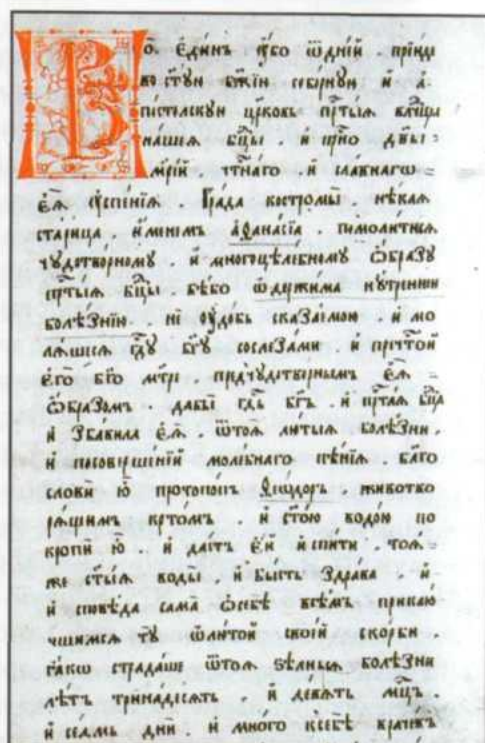 Во единъ ѹбо ѿдней . прїиде
во ст҃ую бж҃їю соборную и а҆
пс̑толскую цр҃ковь прт҃ыѧ влцⷣы
нашеѧ бц҃ы . и прн̑о дв҃ы .
мр҃їи . чтⷭ҇наго . и славнагѡ
еѧ̀ ѹспенїѧ . Града костромы̀ . нѣкаѧ
старица . именемъ аѳанасїа . помолитисѧ
чудотворному . и многоцѣлебному ѡбразу
прт҃ыѧ бц҃ы . бѣбо ѡдержима нутренею
болѣзнїю . не ѹдобь сказаемою . и мо
лѧшесѧ гд҇у бг҃у сослезами . и пречт҇ой
его̀ бг҃о мт҃ре . предчудотворнымъ еѧ̀
ѡбразомъ . дабы̀ гд҇ь бг҃ъ . и прт҇аѧ бц҃а
и збавила еѧ̀ . ѿтоѧ лютыѧ болѣзни .
и посовершенїи молебнаго пѣнїѧ . благо
слови ю̀ протопопъ ѳеѡдоръ . животво
рѧщимъ крт҇омъ . и ст҃ою водою по
кропи ю̀ . и дастъ ей и спити . тоѧ
же ст҃ыѧ воды̀ . и бысть здрава . и
и сповѣда сама ѡсебѣ всѣмъ приклю
чшимсѧ ту ѡлютой своей скорби .
такѡ страдаше ѿтоѧ ѕѣлныѧ болѣзни
лѣтъ тринадесѧть . и девѧть мц҇ъ .
и седмь дней . и много ксебѣ врачевъ